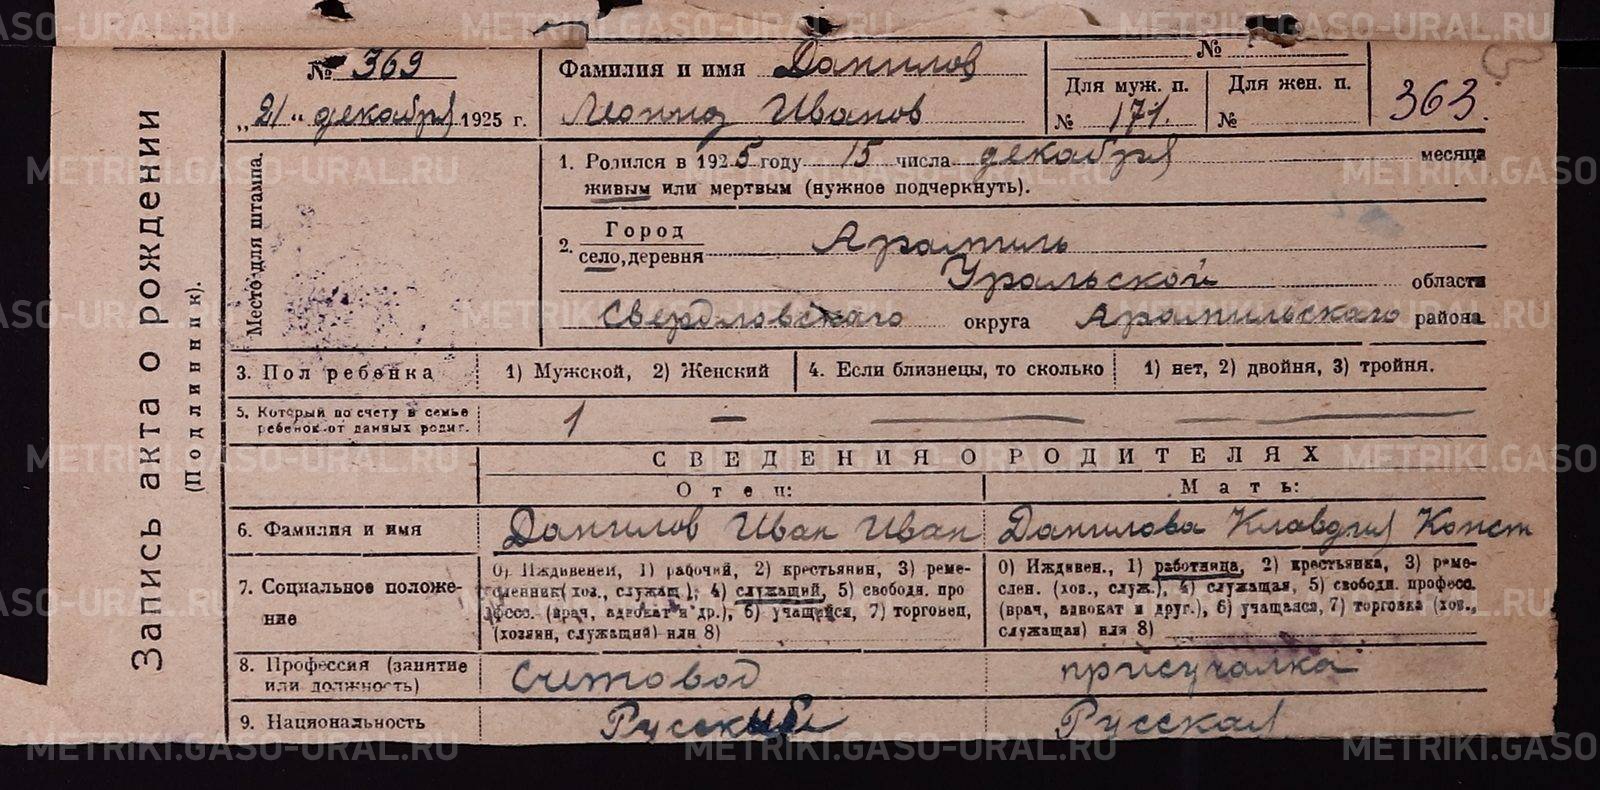 Запись акта о рождении
(Подлинник).
№ 369
„21" декабря 1925 г.
Место для штампа.
Фамилия и имя Данилов
Леонид Иванов
№
Для муж. п. Для жен. п.
№ 171. №
363.
1. Родился в 1925 году 15 числа декабря месяца
живым или мертвым (нужное подчеркнуть).
2. Город
село, деревня Арамиль
Уральской области
Свердловского округа Арамильского района
3. Пол ребенка 1) Мужской, 2) Женский 4. Если близнецы, то сколько 1) нет, 2) двойня, 3) тройня.
5. Который по счету в семье
ребенок от данных родит. 1 — — —
СВЕДЕНИЯ О РОДИТЕЛЯХ
Отец: Мать:
6. Фамилия и имя Данилов Иван Иван Данилова Клавдия Конст
7. Социальное положе-
ние
0) Иждивенец, 1) рабочий, 2) крестьянин, 3) реме-
сленник (хоз., служащ.), 4) служащий, 5) свободн. про
фесс. (врач, адвокат и др.), 6) учащейся, 7) торговец,
(хозяин, служащий) или 8)
0) Иждивен., 1) работница, 2) крестьянка, 3) реме-
слен. (хоз., служ.), 4) служащая, 5) свободн. професс.
(врач, адвокат и друг.), 6) учащаяся, 7) торговка (хоз.,
служащая) или 8)
8. Профессия (занятие
или должность) Счетовод присучалка
9. Национальность Русский Русская
METRIKI.GASO-URAL.RU